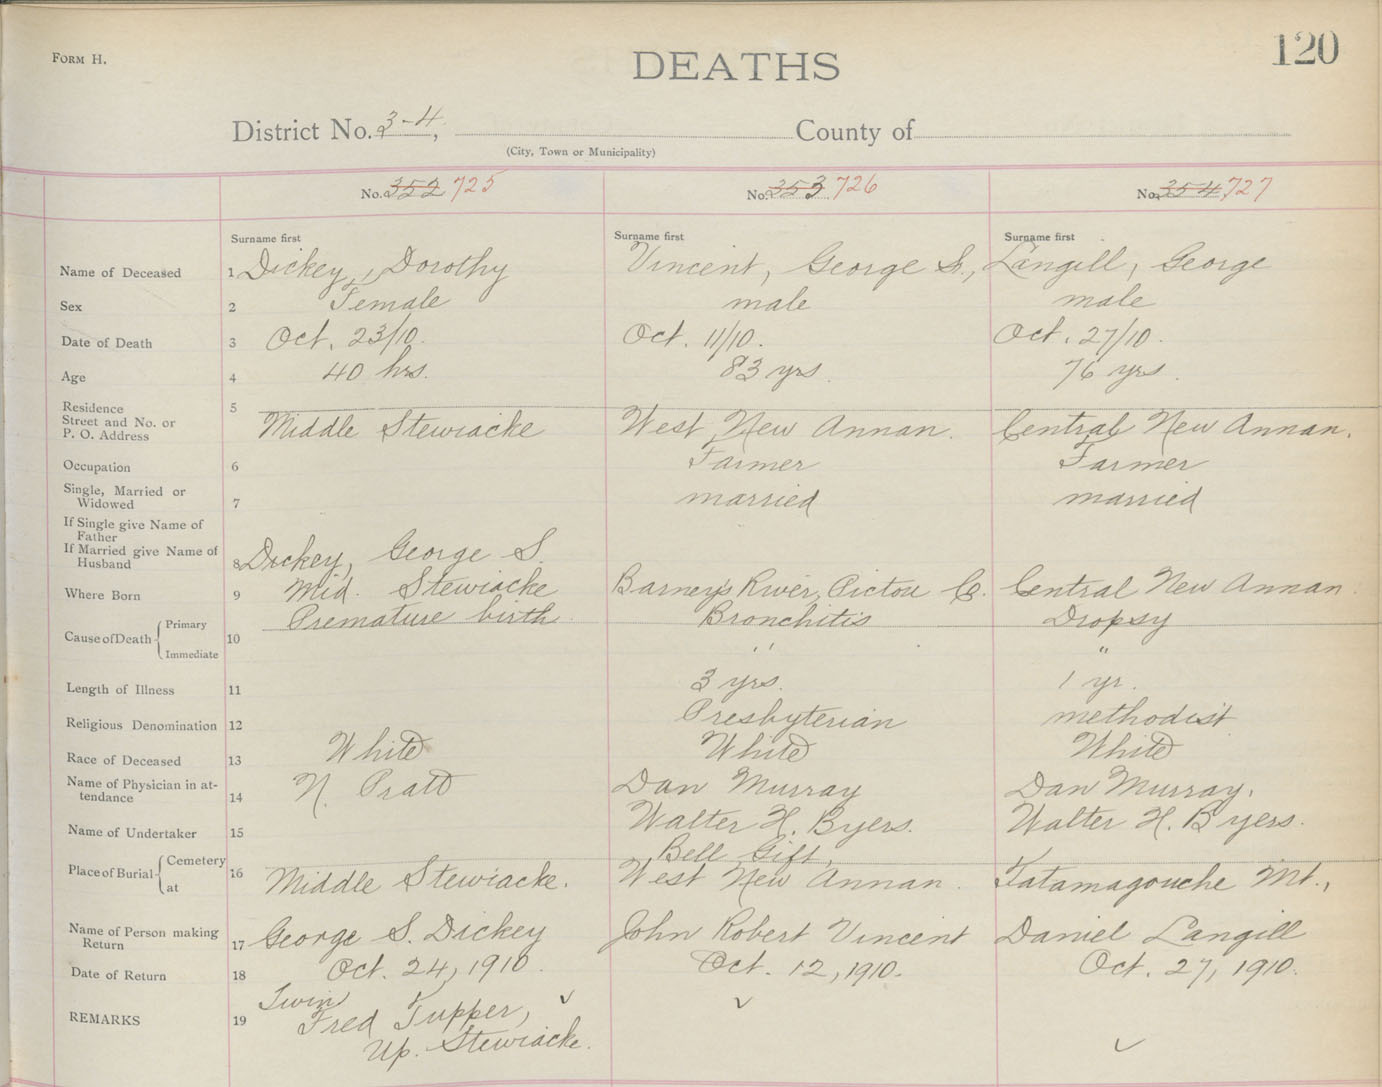 FORM H.
DEATHS
120
District No. 3-4, County of
(City, Town or Municipality)
No. 352 725
No. 353 726
No. 354 727
Surname first
Surname first
Surname first
Name of Deceased 1 Dickey, Dorothy Vincent, George Sr., Langill, George
Sex 2 Female male male
Date of Death 3 Oct. 23/10. Oct. 11/10. Oct. 27/10.
Age 4 40 hrs. 83 yrs. 76 yrs.
Residence 5
Street and No. or
P. O. Address Middle Stewiacke West New Annan. Central New Annan.
Occupation 6 Farmer Farmer
Single, Married or
Widowed 7 married married
If Single give Name of
Father
If Married give Name of
Husband 8 Dickey, George S.
Where Born 9 Mid. Stewiacke Barney's River, Pictou Co. Central New Annan.
Cause of Death Primary 10 Premature birth Bronchitis Dropsy
Immediate " "
Length of Illness 11 3 yrs. 1 yr.
Religious Denomination 12 Presbyterian methodist
Race of Deceased 13 White White White
Name of Physician in at-
tendance 14 N. Pratt Dan Murray Dan Murray.
Name of Undertaker 15 Walter H. Byers. Walter H. Byers.
Place of Burial Cemetery 16 Bell Gift,
at Middle Stewiacke. West New Annan. Tatamagouche Mt.,
Name of Person making
Return 17 George S. Dickey John Robert Vincent Daniel Langill
Date of Return 18 Oct. 24, 1910. Oct. 12, 1910. Oct. 27, 1910.
REMARKS 19 Twin
Fred Tupper,
Up. Stewiacke.